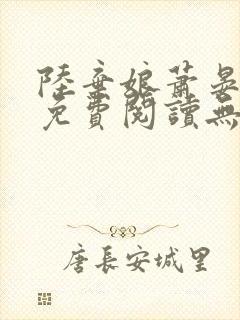 陸棄娘蕭晏
免費閱讀無
唐長安城里